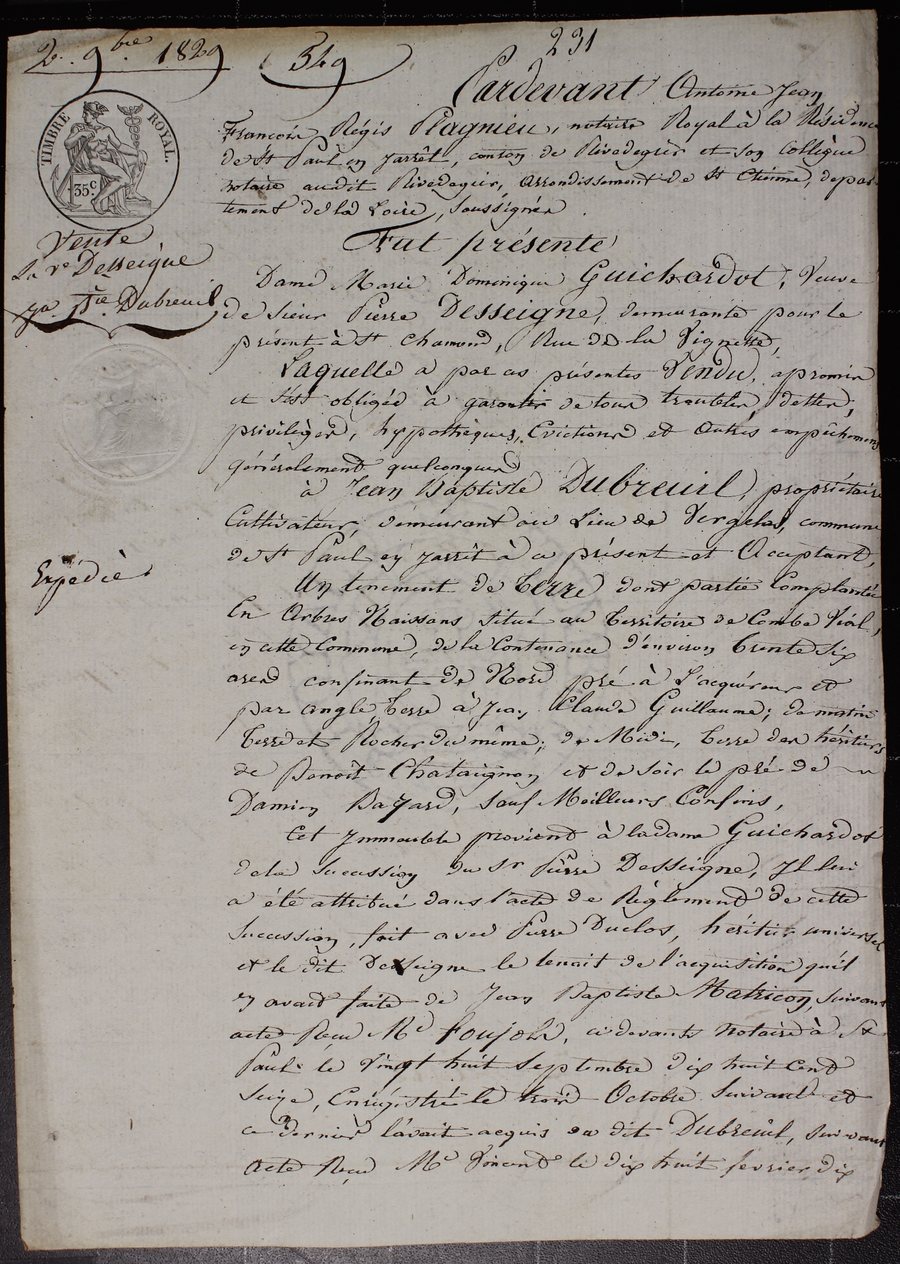 2. 9bre. 1829
549
231
TIMBRE ROYAL.
35c
Vente
La ve Desseigne
Jn Bte Dubreuil
Expédiè
Pardevant Antoine Jean
François Régis Plagnieu, notaire Royal à la Résidence
de St Paul en Jarrêt, canton de Rivedegier et son Collègue
notaire audit Rivedegier, arrondissement de St Etienne, dépar
tement de la Loire, soussignés
Fut présente
Dame Marie Dominique Guichardot, Veuve
de sieur Pierre Desseigne, demeurante pour le
présent à St Chamond, Rue de la Vignette,
Laquelle a par ces présentes Vendu, a promis
et s'est obligée à garantir de tous troubles, dettes,
privilèges, hypothèques, Evictions et Autres empêchemens
généralement quelconques
à Jean Baptiste Dubreuil, propriétaire
Cultivateur, demeurant au Lieu de Vergelas, commune
de St Paul en Jarrêt à ce présent et Acceptant,
Un tenement de Terre dont partie Complantée
En Arbres Naissans situé au Territoire de Combe Vial,
en cette Commune, de la Contenance d'environ trente six
ares confinant de Nord pré à L'acquéreur et
par angle terre à Jean Claude Guillaume; de matin
Terre et Rocher du même; de Midi, terre des héritiers
de Benoît Chataignon et de soir le pré de
Damien Bayard, sauf Meilleurs Confins,
Cet Immeuble provient à ladame Guichardot
dela Succession du Sr Pierre Desseigne, Il lui
a été attribué dans l'acte de Règlement de cette
succession, fait avec Pierre Duclos, héritier universel
et le dit Desseigne le tenait de l'acquisition qu'il
en avait faite de Jean Baptiste Matricon, suivant
acte Reçu Me Foujols, cidevant notaire à St
Paul le Vingt huit septembre dix huit cent
seize, Enrégistré le trois Octobre suivant et
ce dernier l'avait acquis du dit Dubreuil, suivant
Acte Reçu Me Vincent le dix huit février dix